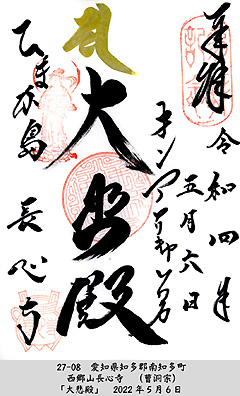 奉拝 令和四年
五月六日
大悲殿
ひまか島 長心寺
27-08 愛知県知多郡南知多町
西郷山長心寺 (曹洞宗)
「大悲殿」 2022年5月6日